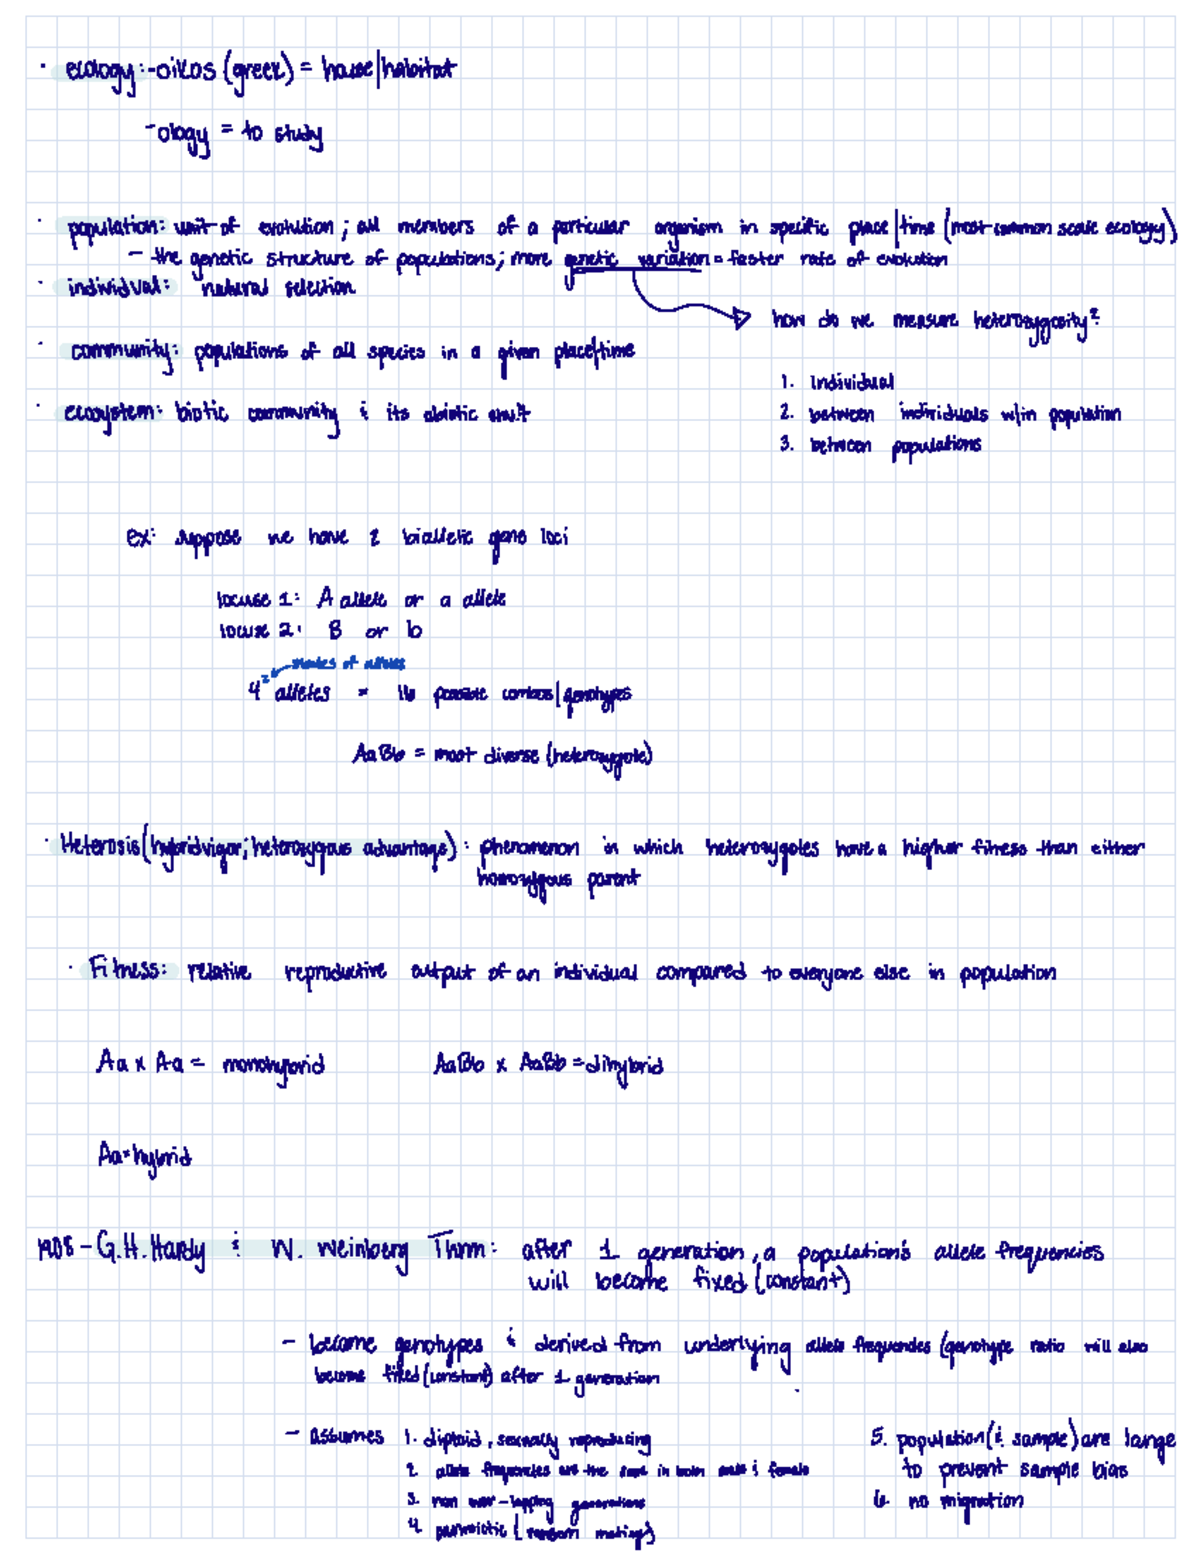 · ecology: -oikos (greek) = house|habitat
-ology = to study
· population: unit of evolution ; all members of a particular organism in specific place|time (most common scale ecology)
- the genetic structure of populations; more genetic variation = faster rate of evolution
· individual: natural selection
how do we measure heterozygosity?
· community: populations of all species in a given place|time
1. individual
· ecosystem: biotic community & its abiotic
2. between individuals w/in population
3. between populations
ex: suppose we have 2 biallelic gene loci
locuse 1: A allele or a allele
locuse 2: B or b
of alleles
4² alleles = 16 possible combos|genotypes
AaBb = most diverse (heterozygote)
· Heterosis (hybrid vigor; heterozygous advantage) : phenomenon in which heterozygotes have a higher fitness than either
homozygous parent
· Fitness: relative reproductive output of an individual compared to everyone else in population
Aa x Aa = monohybrid AaBb x AaBb = dihybrid
Aa = hybrid
1908 - G.H. Hardy & W. Weinberg Thrm: after 1 generation, a population's allele frequencies
will become fixed (constant)
- become genotypes & derived from underlying allele frequencies (genotype ratio will also
become fixed (constant) after 1 generation
- assumes 1. diploid, sexually reproducing
2. allele frequencies are the same in both male & female
3. non over-lapping generations
4. panmictic (random mating)
5. population (& sample) are large
to prevent sample bias
6. no migration